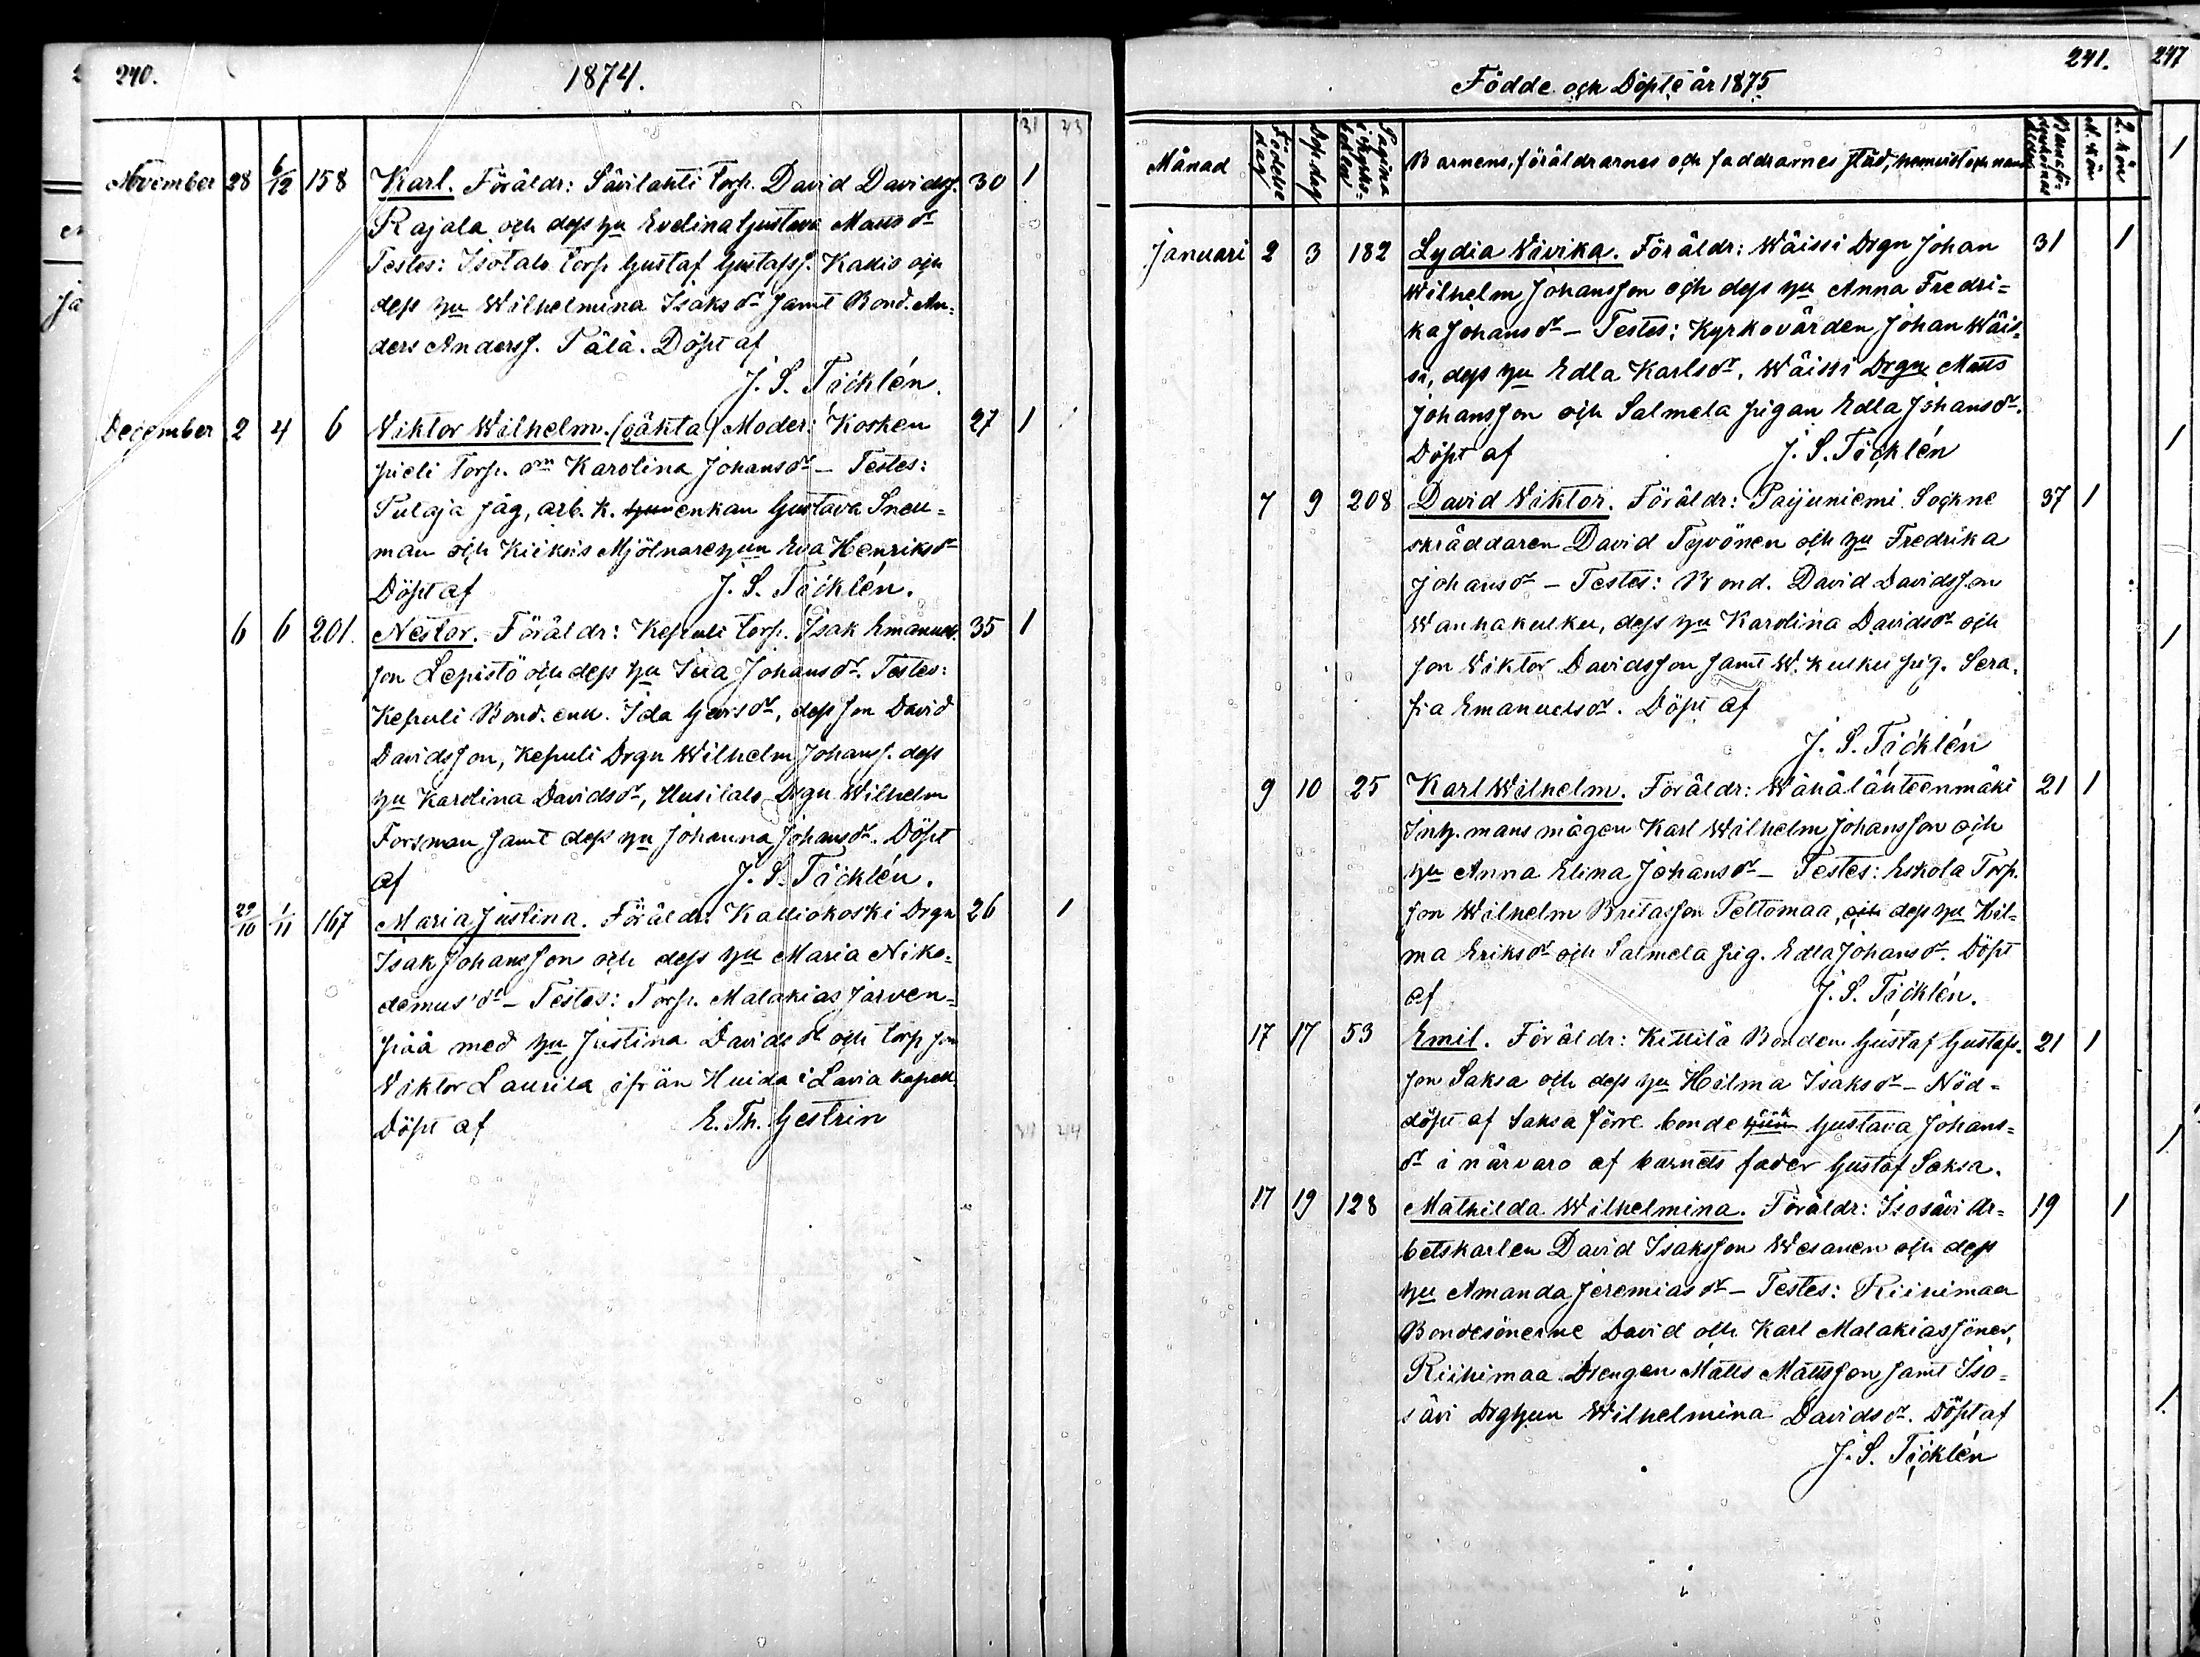 240.
1874.
31 43
November 28 6/12 158 Karl. Föräldr: Sävilahti torp. David Davidss. 30 1
Rajala och dess hu Evelina Gustava Matts dr
Testes: Isotalo torp Gustaf Gustafss. Kallio och
dess hu Wilhelmina Isaks dr samt Bond. An-
ders Anderss. Tälä. Döpt af
J. S. Täcklén.
December 2 4 6 Viktor Wilhelm. (oäkta) Moder: Kosken 27 1
pieli torp. Karolina Johans dr – Testes:
Pulaja jäg, arb. k. enkan Gustava Sneu-
man och Kiikois Mjölnarehun Eva Henriks dr
Döpt af J. S. Täcklén.
6 6 201. Nestor. Föräldr: Kepuli torp. Isak Emanuels. 35 1
son Lepistö och dess hu Johans dr. Testes:
Kepuli Bond. enk. Ida dess son David
Davidsson, Kepuli Drgn Wilhelm Johanss. dess
hu Karolina Davids dr, Drgn Wilhelm
Forsman samt dess hu Johanna Johans dr. Döpt
af J. S. Täcklén.
29/10 1/11 167 Maria Justina. Föräldr: Kalliokoski Drgn 26 1
Isak Johansson och dess hu Maria Niko-
demus' dr – Testes: Torp. Malakias Järven-
pää med hu Justina Davids dr och torp son
Viktor Laurila ifrån Huida i Lavia kapell.
Döpt af E. Th. Gestrin
31 44
241.
Födde och Döpte år 1875
Månad Födelse dag Dop dag Pagina i kyrko-boken Barnens, föräldrarnes och faddrarnes stånd, hemvist och namn M. kön Q. kön
Januari 2 3 182 Lydia Vivika. Föräldr: Wäissi Drgn Johan 31 1
Wilhelm Johansson och dess hu Anna Fredri-
ka Johans dr – Testes: Kyrkovärden Johan Wäis-
si, dess hu Edla Karls dr, Wäissi Drgn Matts
Johansson och Salmela pigan Edla Johans dr.
Döpt af J. S. Täcklén
7 9 208 David Viktor. Föräldr: Paijuniemi Sockne 37 1
skräddaren David Tyvönen och hu Fredrika
Johans dr – Testes: Bond. David Davidsson
Wanhakulku, dess hu Karolina Davids dr och
son Viktor Davidsson samt W. kulku pig. Sera-
fia Emanuels dr. Döpt af
J. S. Täcklén
9 10 25 Karl Wilhelm. Föräldr: Wähälähteenmäki 21 1
Inh. mans mågen Karl Wilhelm Johansson och
hu Anna Elina Johans dr – Testes: Eskola Torp.
son Wilhelm Britasson Peltomaa, och dess hu Hil-
ma Eriks dr och Salmela pig. Edla Johans dr. Döpt
af J. S. Täcklén.
17 17 53 Emil. Föräldr: Kittilä Bonden Gustaf Gustafs- 21 1
son Saksa och dess hu Hilma Isaks dr – Nöd-
döpt af Saksa förre bonde enk Gustava Johans-
dr i närvaro af barnets fader Gustaf Saksa.
17 19 128 Mathilda Wilhelmina. Föräldr: Isosävi Ar- 19 1
betskarlen David Isaksson Wesanen och dess
hu Amanda Jeremias dr – Testes: Riihimaa
Bondesönerne David och Karl Malakiassöner,
Riihimaa Drengen Matts Mattsson samt Iso-
sävi Drghun Wilhelmina Davids dr. Döpt af
J. S. Täcklén
247